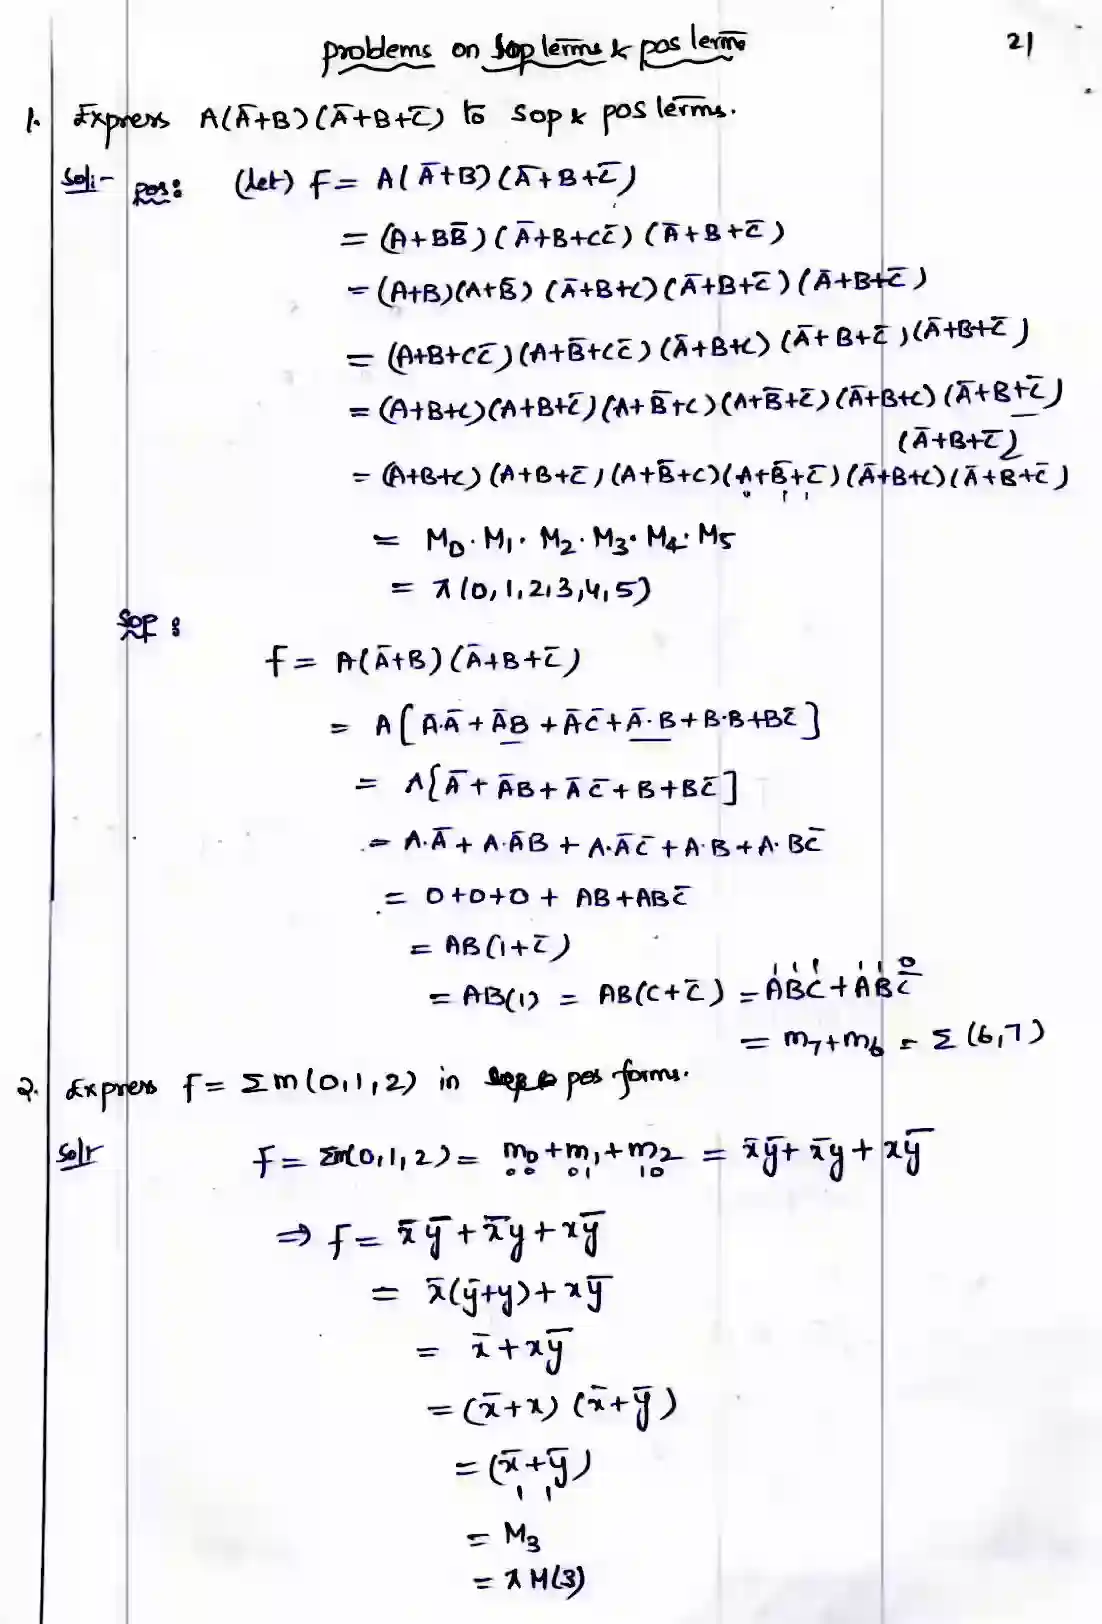 problems on Sop terms & pos terms
21
1. Express A(Ā+B)(Ā+B+C̄) to Sop & pos terms.
Sol:- pos: (let) f = A(Ā+B)(Ā+B+C̄)
= (A+BB̄)(Ā+B+CC̄)(Ā+B+C̄)
= (A+B)(A+B̄)(Ā+B+C)(Ā+B+C̄)(Ā+B+C̄)
= (A+B+CC̄)(A+B̄+CC̄)(Ā+B+C)(Ā+B+C̄)(Ā+B+C̄)
= (A+B+C)(A+B+C̄)(A+B̄+C)(A+B̄+C̄)(Ā+B+C)(Ā+B+C̄)
(Ā+B+C̄)
= (A+B+C)(A+B+C̄)(A+B̄+C)(A+B̄+C̄)(Ā+B+C)(Ā+B+C̄)
0 1 1
= M0 · M1 · M2 · M3 · M4 · M5
= π(0,1,2,3,4,5)
SOP :
f = A(Ā+B)(Ā+B+C̄)
= A[Ā·Ā + ĀB + ĀC̄ + Ā·B + B·B + BC̄]
= A[Ā + ĀB + ĀC̄ + B + BC̄]
= A·Ā + A·ĀB + A·ĀC̄ + A·B + A·BC̄
= 0+0+0 + AB + ABC̄
= AB(1+C̄)
1 1 1 1 1 0
= AB(1) = AB(C+C̄) = ABC + ABC̄
= m7+m6 = Σ(6,7)
2. Express f = Σm(0,1,2) in pos forms.
Solr f = Σm(0,1,2) = m0+m1+m2 = x̄ȳ + x̄y + xȳ
00 01 10
⇒ f = x̄ȳ + x̄y + xȳ
= x̄(ȳ+y) + xȳ
= x̄ + xȳ
= (x̄+x) (x̄+ȳ)
= (x̄+ȳ)
1 1
= M3
= πM(3)